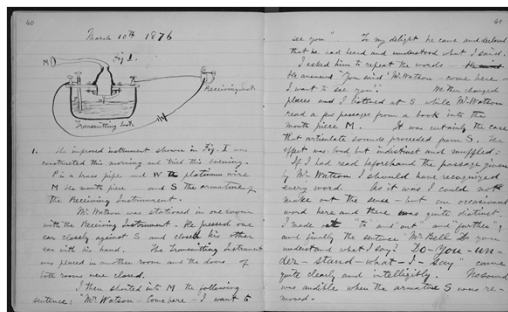 40
March 10th 1876
Fig 1.
M
S
Receiving Inst.
P
W
Transmitting Inst.
1. The improved instrument shown in Fig. I was
constructed this morning and tried this evening.
P is a brass pipe and W the platinum wire
M the mouth piece and S the armature of
the Receiving Instrument.
Mr. Watson was stationed in one room
with the Receiving Instrument. He pressed one
ear closely against S and closed his other
ear with his hand. The Transmitting Instrument
was placed in another room and the doors of
both rooms were closed.
I then shouted into M the following
sentence: "Mr. Watson - Come here - I want to
41
see you". To my delight he came and declared
that he had heard and understood what I said.
I asked him to repeat the words -
He answered "You said 'Mr. Watson - come here -
I want to see you'." We then changed
places and I listened at S while Mr. Watson
read a few passages from a book into the
mouth piece M. It was certainly the case
that articulate sounds proceeded from S. The
effect was loud but indistinct and muffled.
If I had read beforehand the passage given
by Mr. Watson I should have recognized
every word. As it was I could not
make out the sense - but an occasional
word here and there was quite distinct.
I made out "to" and "out" and "further";
and finally the sentence "Mr. Bell do you
understand what I say? Do-you-un-
der-stand-what-I-say" came
quite clearly and intelligibly. No sound
was audible when the armature S was re-
moved.